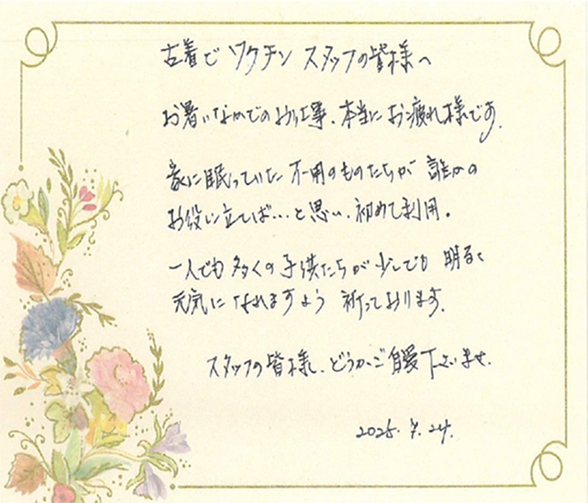 古着でワクチン スタッフの皆様へ
お暑いなかでのお仕事、本当にお疲れ様です。
家に眠っていた不用のものたちが 誰かの
お役に立てば…と思い、初めて利用。
一人でも多くの子供たちが少しでも 明るく
元気になれますよう 祈っております。
スタッフの皆様も、どうかご自愛下さいませ。
2025. 7. 24.